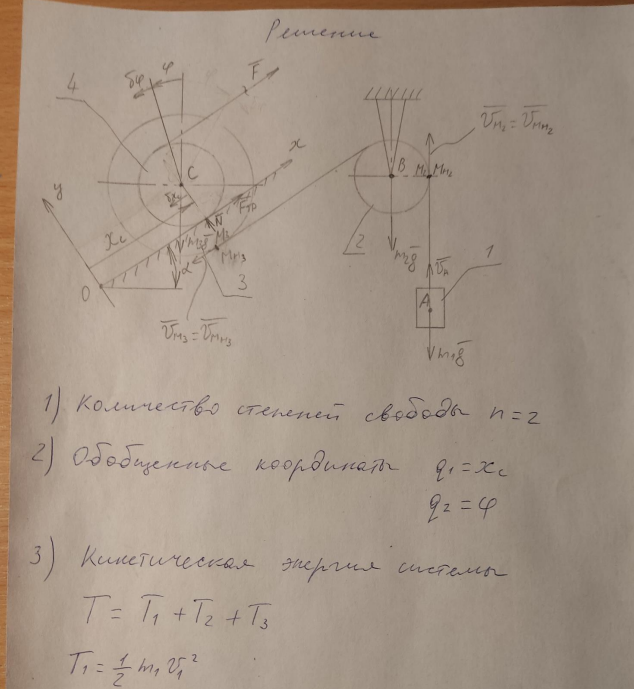 Решение
4
δφ
φ
F̅
x
y
C
x_c
N̅
F̅тр
α
O
3
V̅м₃ = V̅мм₃
B
M₂
Mм₂
V̅м₂ = V̅мм₂
2
m₂g̅
1
A
m₁g̅
1) Количество степеней свободы n = 2
2) Обобщенные координаты q₁ = x_c
q₂ = φ
3) Кинетическая энергия системы
T = T₁ + T₂ + T₃
T₁ = 1/2 m₁ V₁²